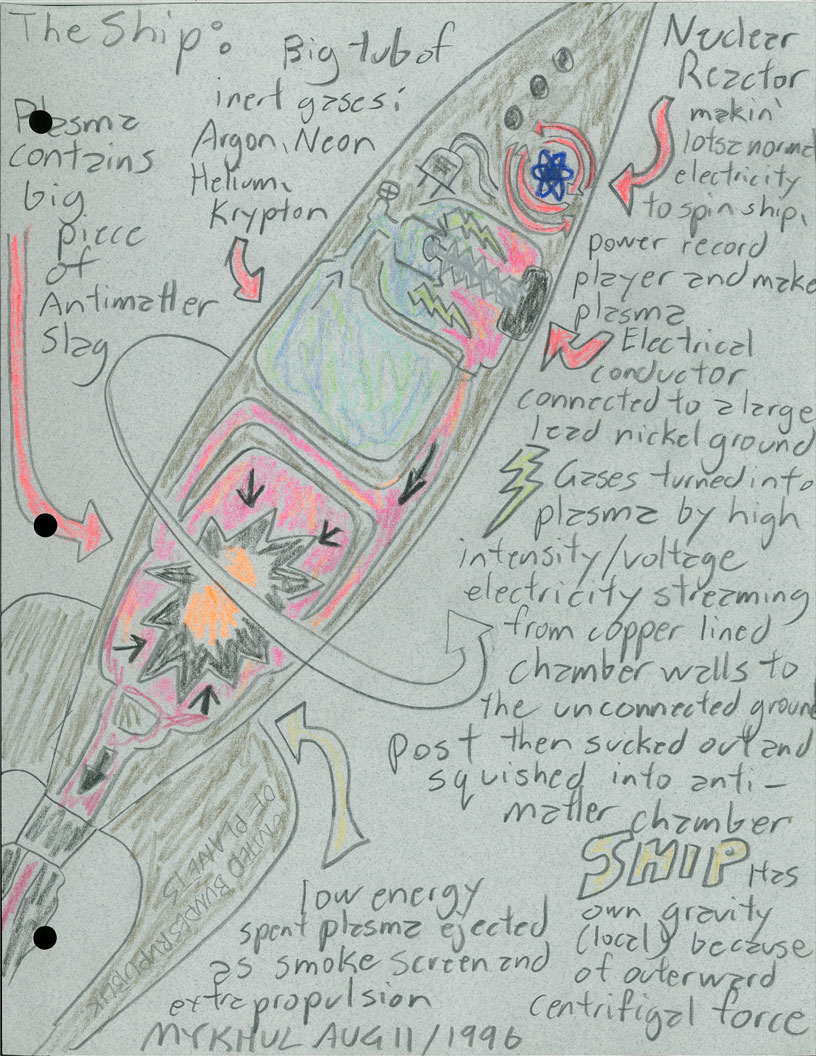 The Ship:
Big tub of
inert gases:
Argon, Neon
Helium,
Krypton
Plasma
contains
big
piece
of
Antimatter
Slag
Nuclear
Reactor
makin'
lotsa normal
electricity
to spin ship,
power record
player and make
plasma
Electrical
conductor
connected to a large
lead nickel ground
Gases turned into
plasma by high
intensity/voltage
electricity streaming
from copper lined
chamber walls to
the unconnected ground
post then sucked out and
squished into anti-
matter chamber
SHIP Has
own gravity
(local) because
of outerward
centrifigal force
low energy
spent plasma ejected
as smoke screen and
extra propulsion
UNITED BUNDESREPUBLIK
OF PLANETS
MYKHUL AUG 11/1996